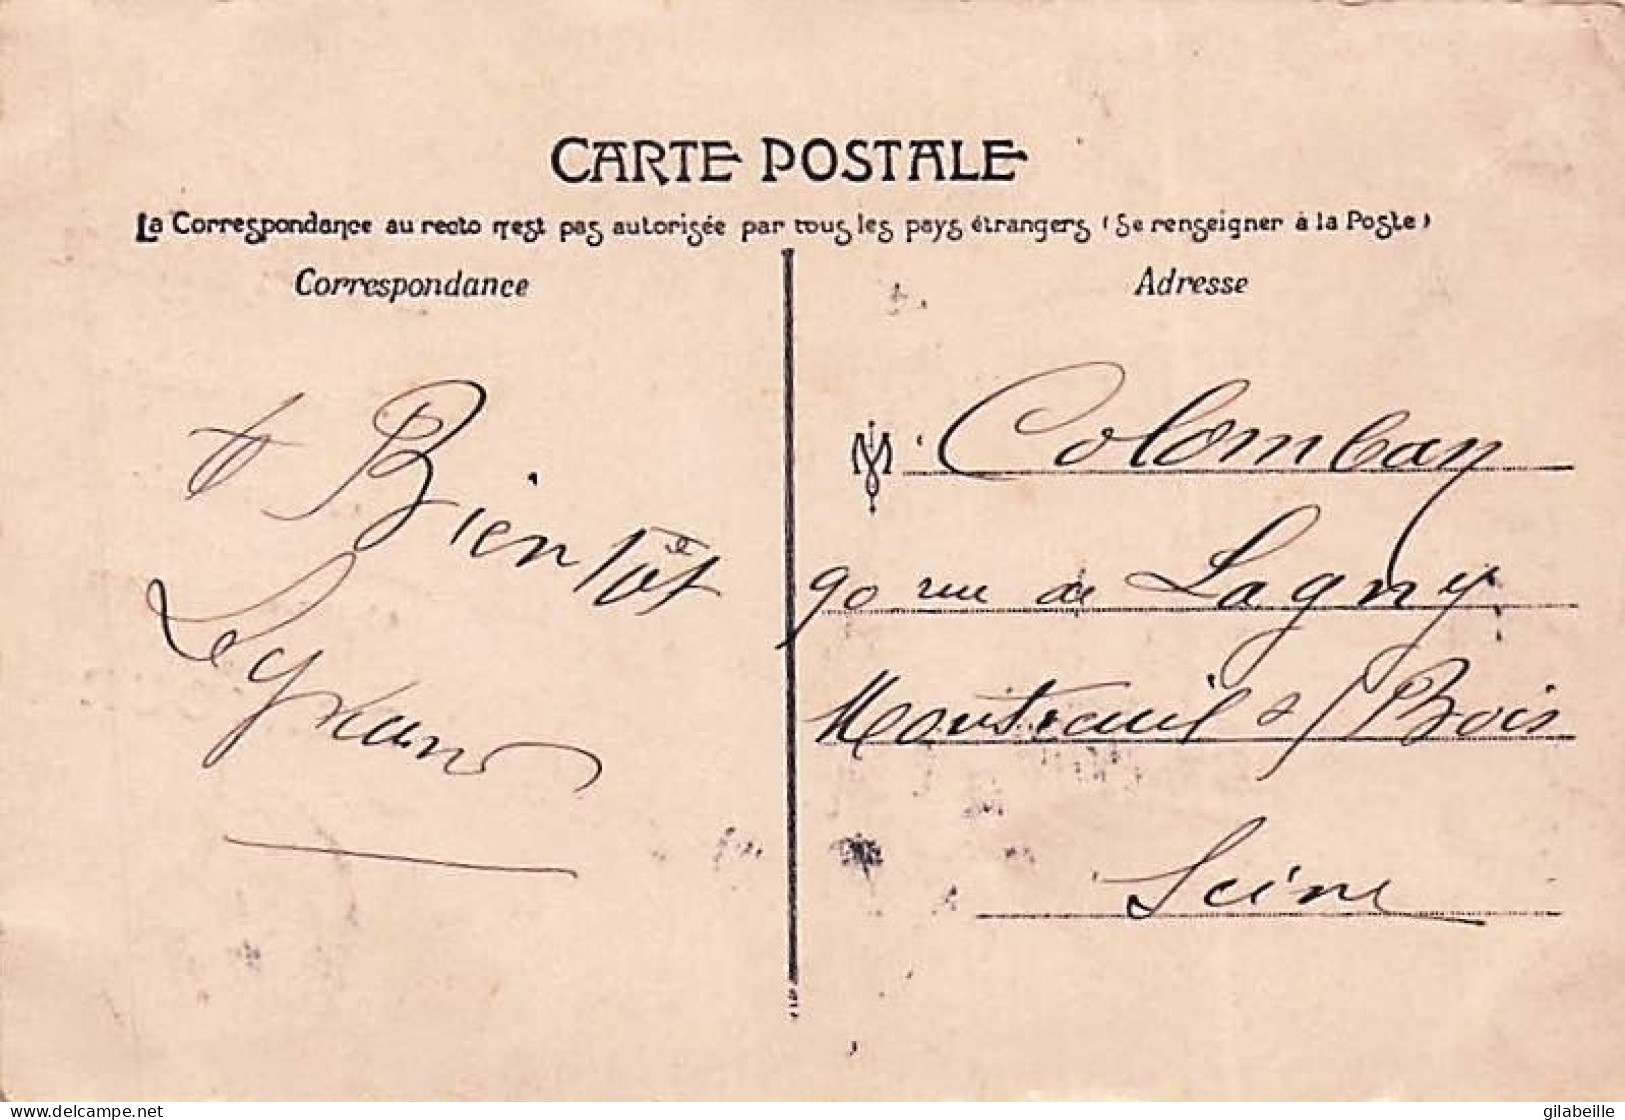 CARTE POSTALE
La Correspondance au recto n'est pas autorisée par tous les pays étrangers (Se renseigner à la Poste)
Correspondance
Adresse
à Bientôt
M. Colomban
90 rue de Lagny
Montreuil s/ Bois
Seine
delcampe.net
gilabeille